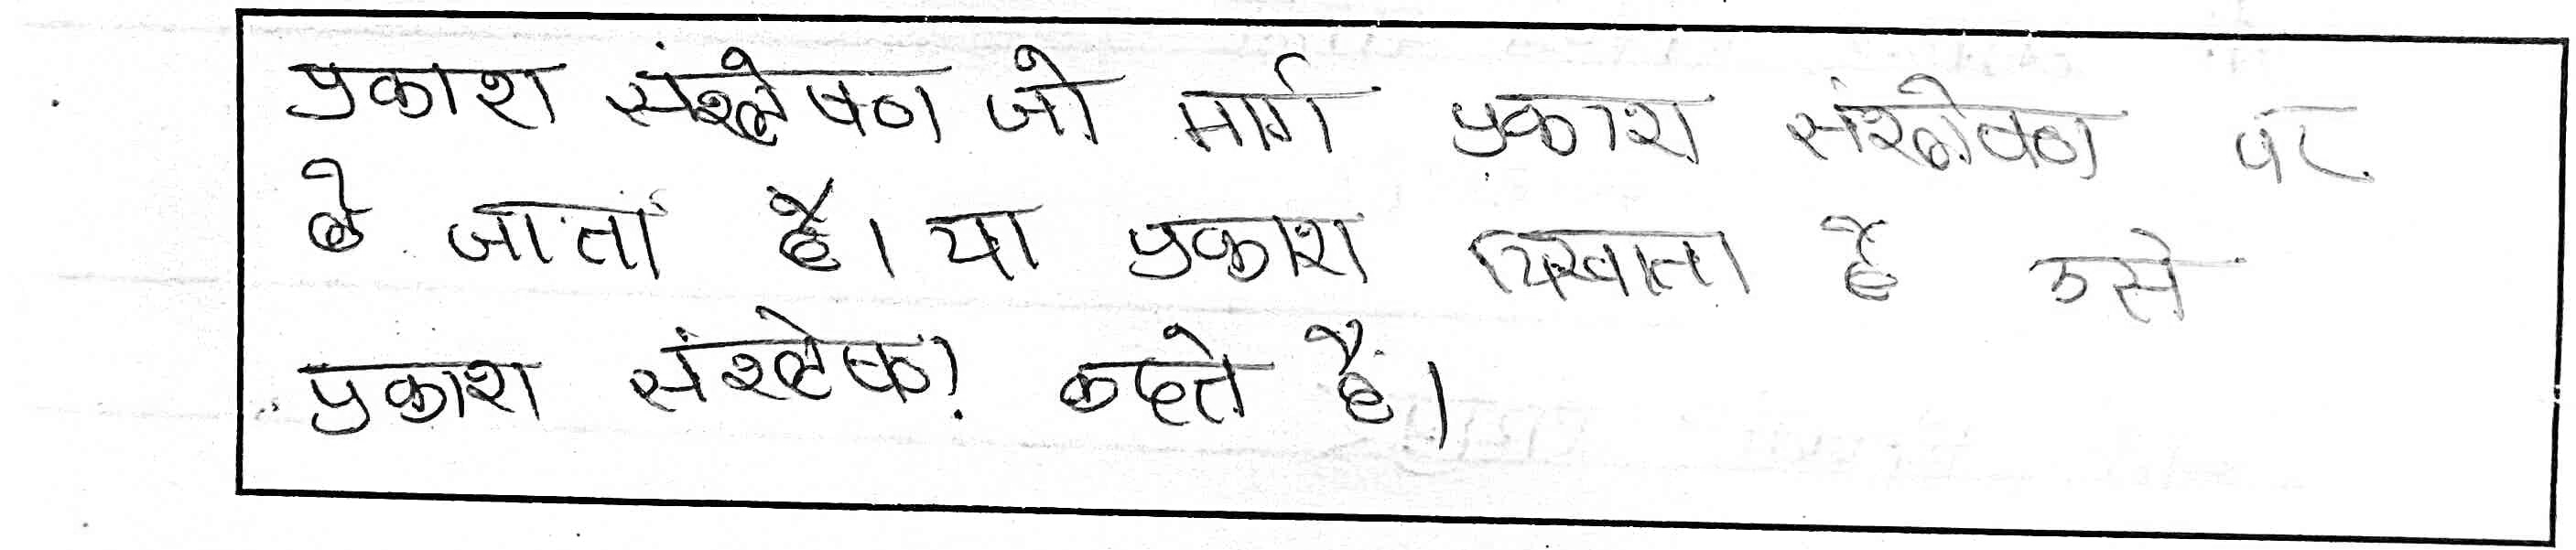 प्रकाश संश्लेषण जो मार्ग प्रकाश संश्लेषण पर
ले जाता है। या प्रकाश दिखाता है उसे
प्रकाश संश्लेषण कहते है।